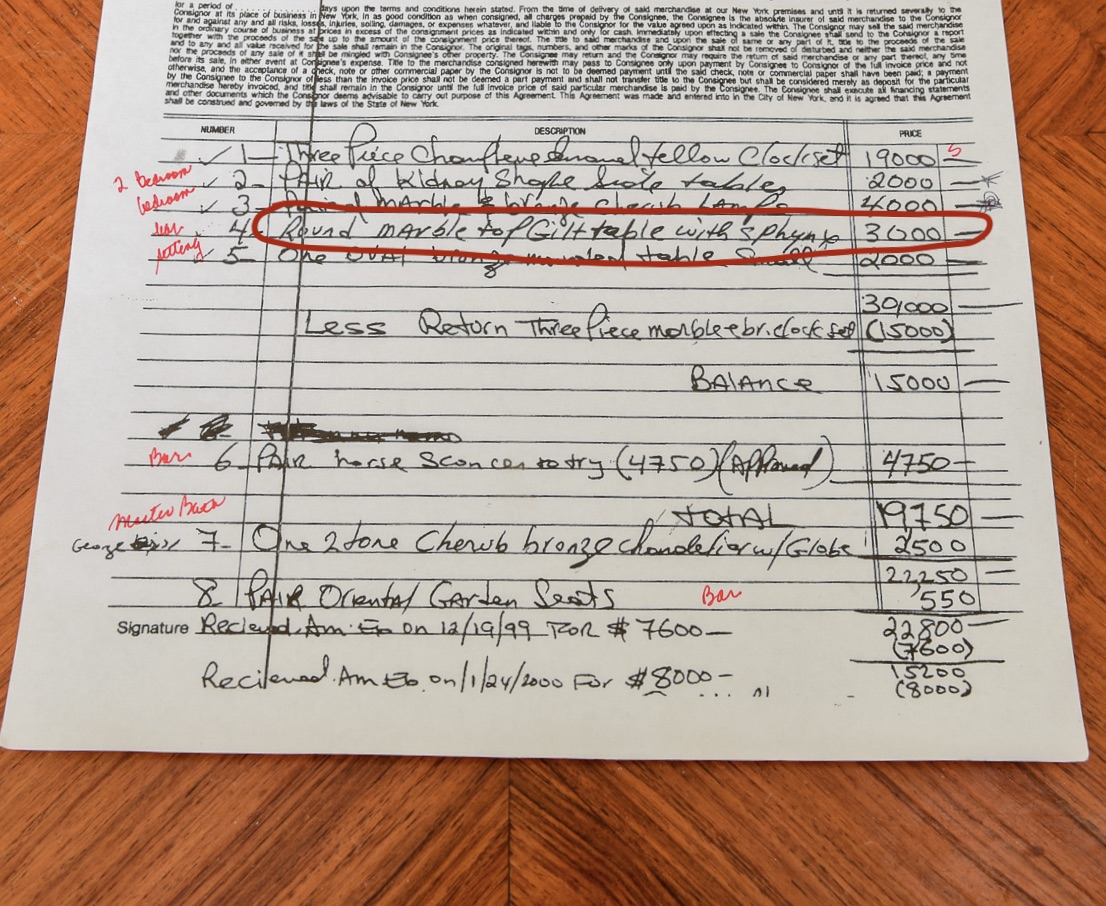 for a period of days upon the terms and conditions herein stated. From the time of delivery of said merchandise at our New York premises and until it is returned severally to the
Consignor at its place of business in New York, in as good condition as when consigned, all charges prepaid by the Consignee, the Consignee is the absolute insurer of said merchandise to the Consignor
for and against any and all risks, losses, injuries, soiling, damages, or expenses whatever, and liable to the Consignor for the value agreed upon as indicated within. The Consignor may sell the said merchandise
in the ordinary course of business at prices in excess of the consignment prices as indicated within and only for cash. Immediately upon effecting a sale the Consignee shall send to the Consignor a report
together with the proceeds of the sale up to the amount of the consignment price thereof. The title to said merchandise and upon the sale of same or any part of it, title to the proceeds of the sale
and to any and all value received for the sale shall remain in the Consignor. The original tags, numbers, and other marks of the Consignor shall not be removed or disturbed and neither the said merchandise
nor the proceeds of any sale of it shall be mingled with Consignee's other property. The Consignee may return and the Consignor may require the return of said merchandise or any part thereof, any time
before its sale, in either event at Consignee's expense. Title to the merchandise consigned herewith may pass to Consignee only upon payment by Consignee to Consignor of the full invoice price and not
otherwise, and the acceptance of a check, note or other commercial paper by the Consignor is not to be deemed payment until the said check, note or commercial paper shall have been paid; a payment
by the Consignee to the Consignor of less than the invoice price shall not be deemed a part payment and shall not transfer title to the Consignee but shall be considered merely as deposit for the particular
merchandise hereby invoiced, and title shall remain in the Consignor until the full invoice price of said particular merchandise is paid by the Consignee. The Consignee shall execute all financing statements
and other documents which the Consignor deems advisable to carry out purpose of this Agreement. This Agreement was made and entered into in the City of New York, and it is agreed that this Agreement
shall be construed and governed by the laws of the State of New York.
NUMBER DESCRIPTION PRICE
✓ 1- Three Piece Enamel Yellow Clock set 19000 5
2 bedroom ✓ 2- PAIR of Kidney Shape Side tables 2000
bedroom ✓ 3- marble & bronze cherub Lamps 4000
4- Round marble top Gilt table with sphynx 3000
✓ 5- One OVAl bronze mounted table Small 2000
30,000
Less Return Three Piece marble & br. clock set (15000)
BAlANCE 15000
Bar 6- PAIR horse Sconces to try (4750) (Approved) 4750
TOTAL 19,750
Master Bath
George 7- One 2 tone Cherub bronze chandelier w/ Globe 2500
22,250
8 PAIR Oriental GArden Seats Bar 550
Signature Recieved Am Ex on 12/19/99 FOR $7600- 22800
(7600)
15200
Recieved Am Ex on 1/24/2000 For $8000- (8000)